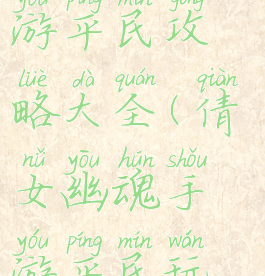 yóu píng mín gōng
游平民攻
lüè dà quán qiàn
略大全(倩
nǚ yōu hún shǒu
女幽魂手
yóu píng mín wán
游平民玩